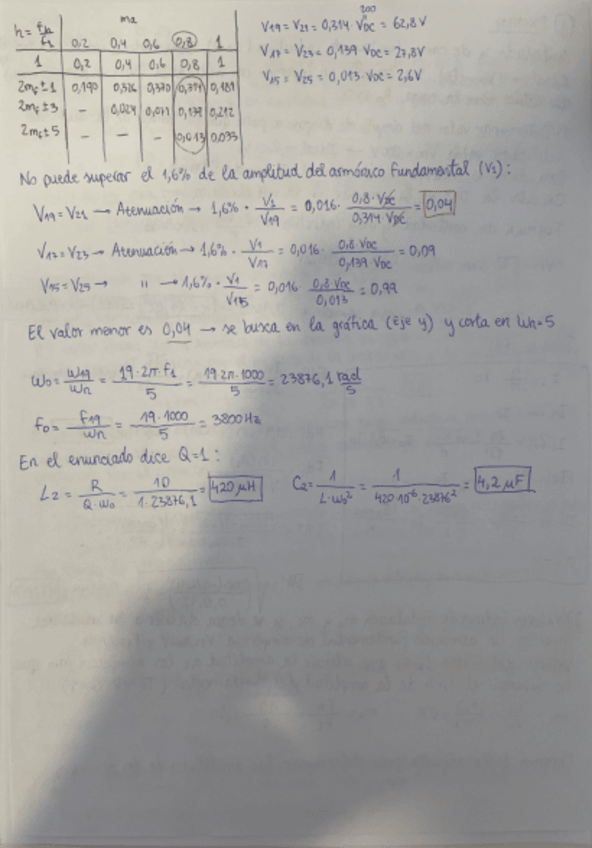 h = fh/f1 ma
0,2 0,4 0,6 0,8 1
1 0,2 0,4 0,6 0,8 1
2mf ± 1 0,190 0,326 0,370 0,314 0,181
2mf ± 3 - 0,024 0,071 0,139 0,212
2mf ± 5 - - - 0,013 0,033
V19 = V21 = 0,314 · VDC = 62,8 V
200
V17 = V23 = 0,139 · VDC = 27,8 V
V15 = V25 = 0,013 · VDC = 2,6 V
No puede superar el 1,6% de la amplitud del armónico fundamental (V1):
V19 = V21 → Atenuación → 1,6% · V1/V19 = 0,016 · 0,8·VDC/0,314·VDC = 0,04
V17 = V23 → Atenuación → 1,6% · V1/V17 = 0,016 · 0,8·VDC/0,139·VDC = 0,09
V15 = V25 → " → 1,6% · V1/V15 = 0,016 · 0,8 VDC/0,013 = 0,99
El valor menor es 0,04 → se busca en la gráfica (Eje y) y corta en Wn=5
W0 = W19/Wn = 19·2π·f1/5 = 19·2π·1000/5 = 23876,1 rad/s
f0 = f19/Wn = 19·1000/5 = 3800 Hz
En el enunciado dice Q=1:
L2 = R/Q·W0 = 10/1·23876,1 = 420 μH C2 = 1/L·W0² = 1/420·10⁻⁶·23876² = 4,2 μF